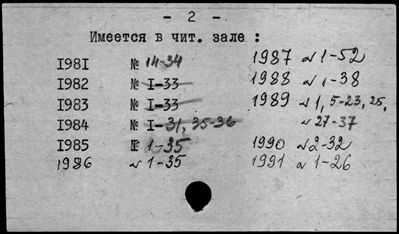 - 2 -
Имеется в чит. зале :
1981 № 14-34 1987 № 1-52
1982 № I-33 1988 № 1-38
1983 № I-33 1989 № 1, 5-23, 25,
1984 № I-31, 35-36 № 27-37
1985 № 1-35 1990 № 2-32
1986 № 1-35 1991 № 1-26